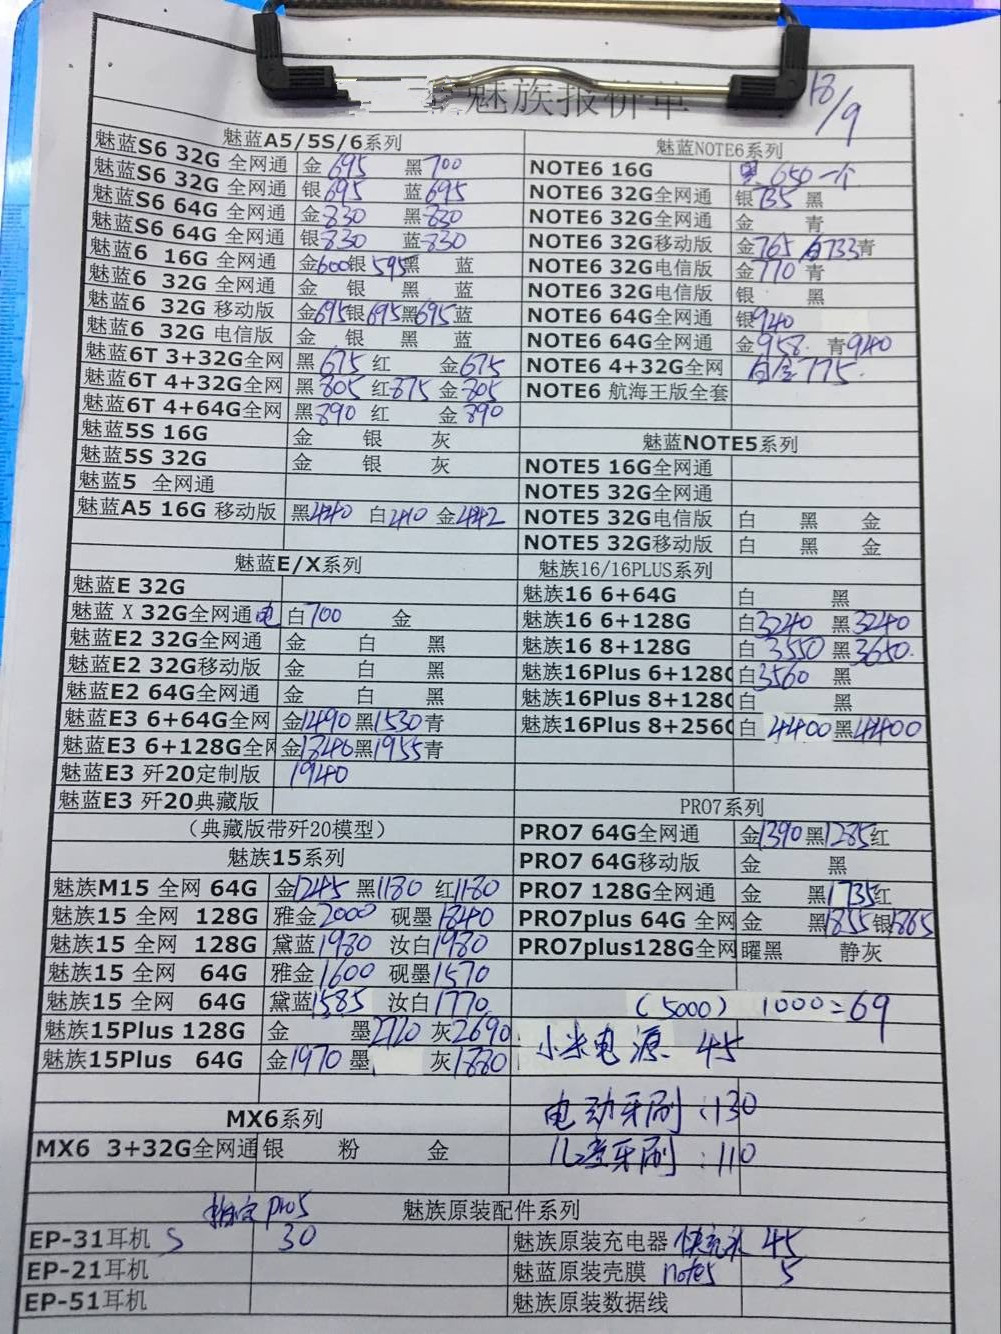 魅族报价单
18/9
魅蓝A5/5S/6系列
魅蓝S6 32G 全网通 金695 黑700
魅蓝S6 32G 全网通 银695 蓝695
魅蓝S6 64G 全网通 金830 黑830
魅蓝S6 64G 全网通 银830 蓝830
魅蓝6 16G 全网通 金600银595黑 蓝
魅蓝6 32G 全网通 金 银 黑 蓝
魅蓝6 32G 移动版 金695银695黑695蓝
魅蓝6 32G 电信版 金 银 黑 蓝
魅蓝6T 3+32G全网 黑675红 金675
魅蓝6T 4+32G全网 黑805 红875 金805
魅蓝6T 4+64G全网 黑890 红 金890
魅蓝5S 16G 金 银 灰
魅蓝5S 32G 金 银 灰
魅蓝5 全网通
魅蓝A5 16G 移动版 黑440 白410 金442
魅蓝E/X系列
魅蓝E 32G
魅蓝X 32G全网通电 白700 金
魅蓝E2 32G全网通 金 白 黑
魅蓝E2 32G移动版 金 白 黑
魅蓝E2 64G全网通 金 白 黑
魅蓝E3 6+64G全网 金1490黑1530青
魅蓝E3 6+128G全网 金1846黑1955青
魅蓝E3 歼20定制版 1940
魅蓝E3 歼20典藏版
（典藏版带歼20模型）
魅族15系列
魅族M15 全网 64G 金1245 黑1180 红1180
魅族15 全网 128G 雅金2000 砚墨1840
魅族15 全网 128G 黛蓝1980 汝白1980
魅族15 全网 64G 雅金1600 砚墨1570
魅族15 全网 64G 黛蓝1585 汝白1770
魅族15Plus 128G 金 墨2720 灰2690
魅族15Plus 64G 金1970 墨 灰1880
MX6系列
MX6 3+32G全网通 银 粉 金
魅蓝NOTE6系列
NOTE6 16G 650一个
NOTE6 32G全网通 银735 黑
NOTE6 32G全网通 金 青
NOTE6 32G移动版 金765 白733青
NOTE6 32G电信版 金770 青
NOTE6 32G电信版 银 黑
NOTE6 64G全网通 银940
NOTE6 64G全网通 金958. 青940
NOTE6 4+32G全网 775.
NOTE6 航海王版全套
魅蓝NOTE5系列
NOTE5 16G全网通
NOTE5 32G全网通
NOTE5 32G电信版 白 黑 金
NOTE5 32G移动版 白 黑 金
魅族16/16PLUS系列
魅族16 6+64G 白 黑
魅族16 6+128G 白3240 黑3240
魅族16 8+128G 白 3550 黑3650.
魅族16Plus 6+128G 白3560 黑
魅族16Plus 8+128G 白 黑
魅族16Plus 8+256G 白 4400黑4400
PRO7系列
PRO7 64G全网通 金1390黑1285红
PRO7 64G移动版 金 黑
PRO7 128G全网通 金 黑1735红
PRO7plus 64G 全网 金 黑1855银1865
PRO7plus128G全网 曜黑 静灰
(5000) 1000=69
小米电源 45
电动牙刷:130
儿童牙刷:110
魅族原装配件系列
pro5
EP-31耳机 S 30
EP-21耳机
EP-51耳机
魅族原装充电器 快充 45
魅蓝原装壳膜 note5 5
魅族原装数据线